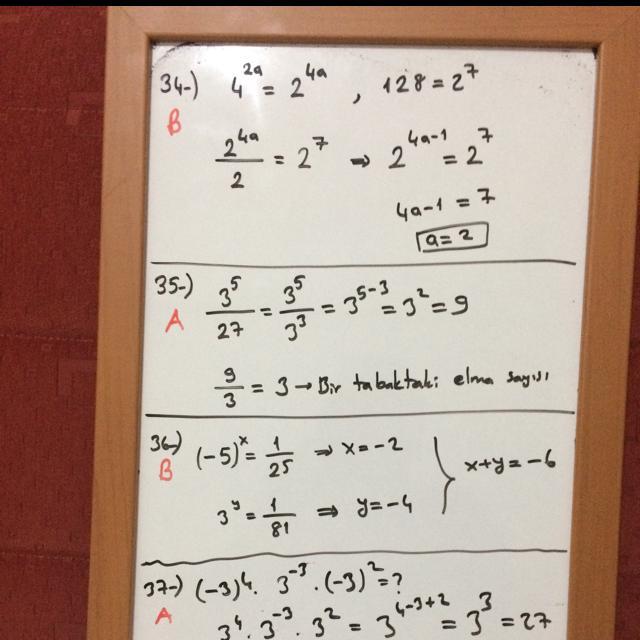 34-) 4^2a = 2^4a , 128 = 2^7
B
2^4a / 2 = 2^7 ⇒ 2^4a-1 = 2^7
4a-1 = 7
a = 2
35-) 3^5 / 27 = 3^5 / 3^3 = 3^5-3 = 3^2 = 9
A
9/3 = 3 → Bir tabaktaki elma sayısı
36-) (-5)^x = 1/25 ⇒ x = -2
B
3^y = 1/81 ⇒ y = -4 } x+y = -6
37-) (-3)^4 . 3^-3 . (-3)^2 = ?
A
3^4 . 3^-3 . 3^2 = 3^4-3+2 = 3^3 = 27